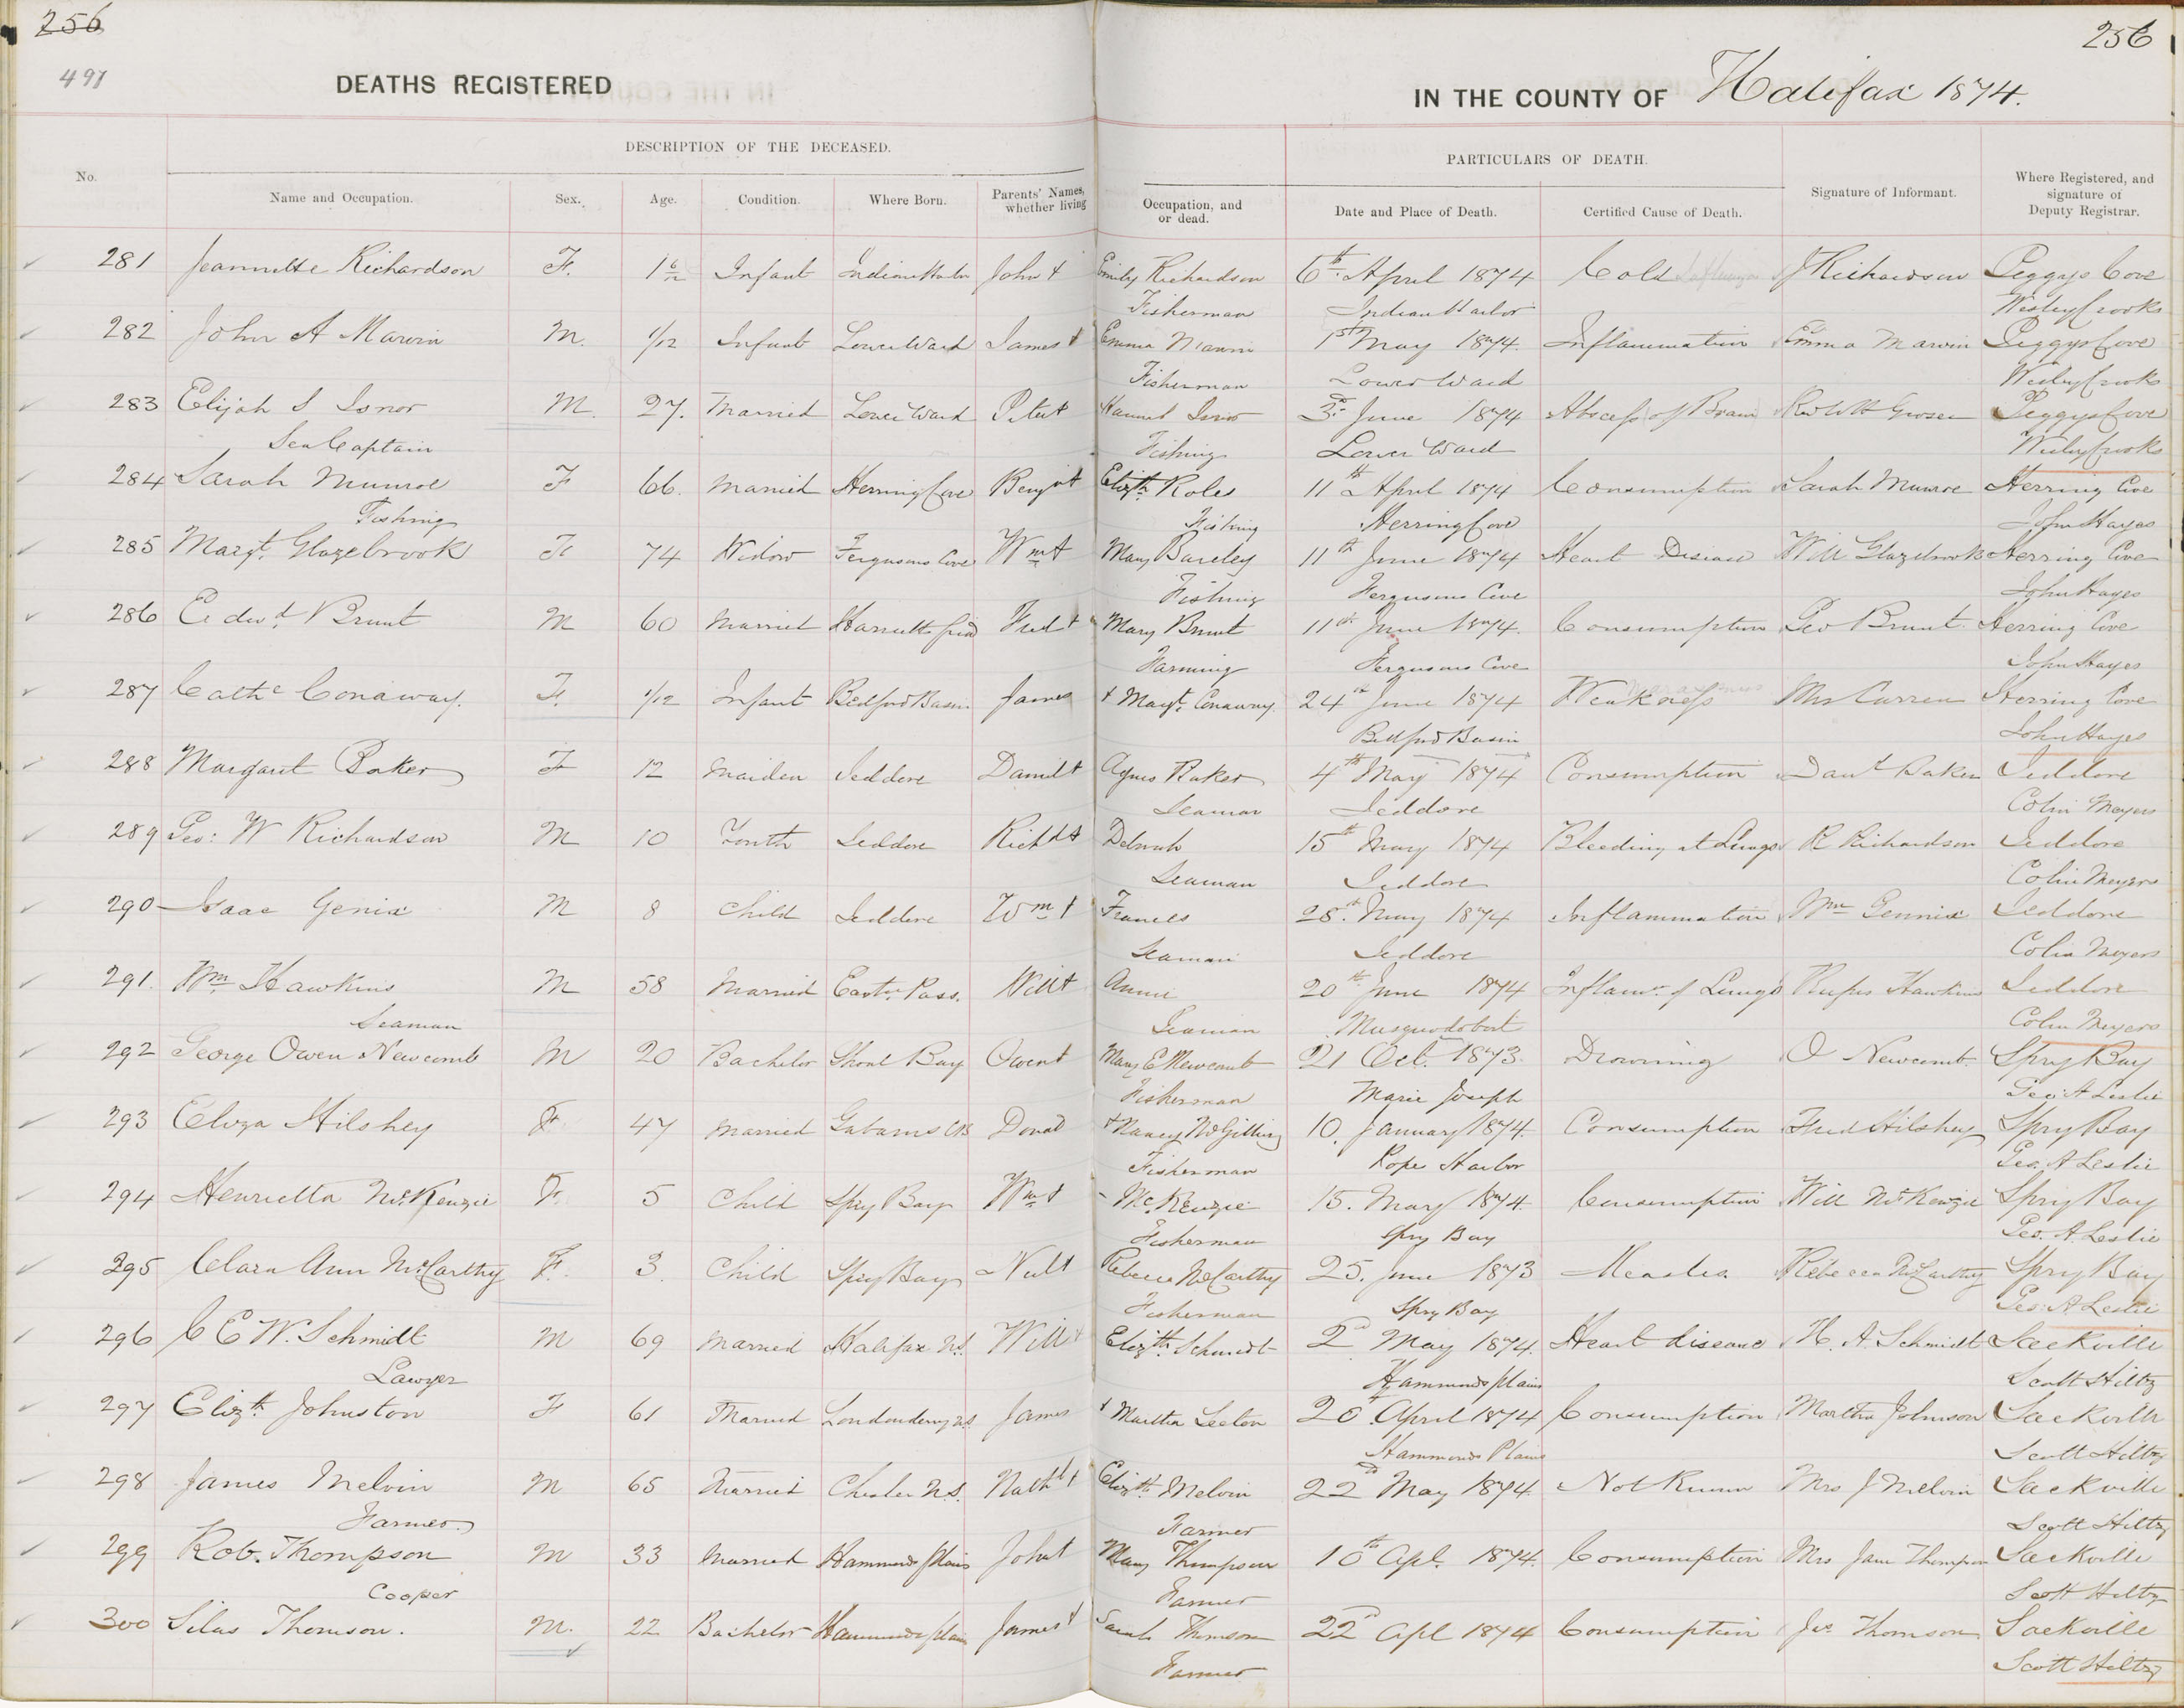 256 256
491
DEATHS REGISTERED IN THE COUNTY OF Halifax 1874.
DESCRIPTION OF THE DECEASED. PARTICULARS OF DEATH.
No. Name and Occupation. Sex. Age. Condition. Where Born. Parents' Names, whether living Occupation, and or dead. Date and Place of Death. Certified Cause of Death. Signature of Informant. Where Registered, and signature of Deputy Registrar.
281 Jeannette Richardson F. 1 6/12 Infant Indian Harbr John & Emily Richardson 6th April 1874 Cold Influenza J Richardson Peggys Cove
Fisherman Indian Harbor Wesley Crooks
282 John A Marvin M. 1/12 Infant Lower Ward James & Emma Marvin 1st May 1874. Inflammation Emma Marvin Peggys Cove
Fisherman Lower Ward Wesley Crooks
283 Elijah S Isnor M. 27. Married Lower Ward Peter & Hannah Isnor 3rd June 1874 Abscess of Brain Rev W H Peggys Cove
Sea Captain Fishing Lower Ward Wesley Crooks
284 Sarah Munroe F 66. Married Herring Cove Benjn & Elizth Roles 11th April 1874 Consumption Sarah Munroe Herring Cove
Fishing Fishing Herring Cove John Hayes
285 Margt. Glazebrook F 74 Widow Fergusons Cove Wm & Mary 11th June 1874 Heart Disease Will Glazebrook Herring Cove
Fishing Fergusons Cove John Hayes
286 Edwd Brunt M 60 Married Fredk & Mary Brunt 11th June 1874. Consumption Geo Brunt Herring Cove
Farming Fergusons Cove John Hayes
287 Cathe Conaway. F. 1/12 Infant Bedford Basin James & Margt. Conaway. 24th June 1874 Weakness Marasmus Mrs Curren Herring Cove
Bedford Basin John Hayes
288 Margaret Baker F 12 Maiden Jeddore Daniel & Agnes Baker 4th May 1874 Consumption Danl Baker Jeddore
Seaman Jeddore Colin Meyers
289 Geo: W Richardson M 10 Youth Jeddore Richd & Deborah 15th May 1874 Bleeding at Lungs R Richardson Jeddore
Seaman Jeddore Colin Meyers
290 Isaac Genix M 8 Child Jeddore Wm & Frances 28th May 1874 Inflammation Wm Gennix Jeddore
Seaman Jeddore Colin Meyers
291. Wm Hawkins M 58 Married Eastn Pass. Will & Annie 20th June 1874 Inflamn. of Lungs Rufus Hawkins Jeddore
Seaman Seaman Musquodoboit Colin Meyers
292 George Owen Newcomb M 20 Bachelor Shoal Bay Owen & Mary E Newcomb 21 Oct. 1873. Drowning O Newcomb. Spry Bay
Fisherman Marie Joseph Geo A Leslie
293 Eliza Hilshey F 47 Married Gabarus CB Donad & Nancy 10. January 1874. Consumption Fred Hilshey Spry Bay
Fisherman Pope Harbor Geo. A Leslie
294 Henrietta McKenzie F. 5 Child Spry Bay Wm & - McKenzie 15. May 1874. Consumption Will McKenzie Spry Bay
Fisherman Spry Bay Geo. A. Leslie
295 Clara Ann McCarthy F. 3. Child Spry Bay Neil & Rebecca McCarthy 25. June 1873 Measles Rebecca McCarthy Spry Bay
Fisherman Spry Bay Geo. A Leslie
296 C E W. Schmidt M 69 Married Halifax N.S. Will & Elizth Schmidt 2nd May 1874. Heart disease H. A. Schmidt Sackville
Lawyer Hammonds plains Scott Hiltz
297 Elizth Johnston F 61 Married Londonderry N.S James & Martha 20th April 1874 Consumption Martha Johnson Sackville
Hammonds Plains Scott Hiltz
298 James Melvin M 65 Married Chester N.S. Nathl & Elizth Melvin 22nd May 1874. Not Known Mrs J Melvin Sackville
Farmer. Farmer Scott Hiltz
299 Rob. Thompson M 33 Married Hammonds plains John & Mary Thompson 10th Apl. 1874. Consumption Mrs Jane Thompson Sackville
Cooper Farmer Scott Hiltz
300 Silas Thomson. M. 22 Bachelor Hammonds plains James & Sarah Thomson 22nd Apl 1874 Consumption Jas Thomson Sackville
Farmer Scott Hiltz